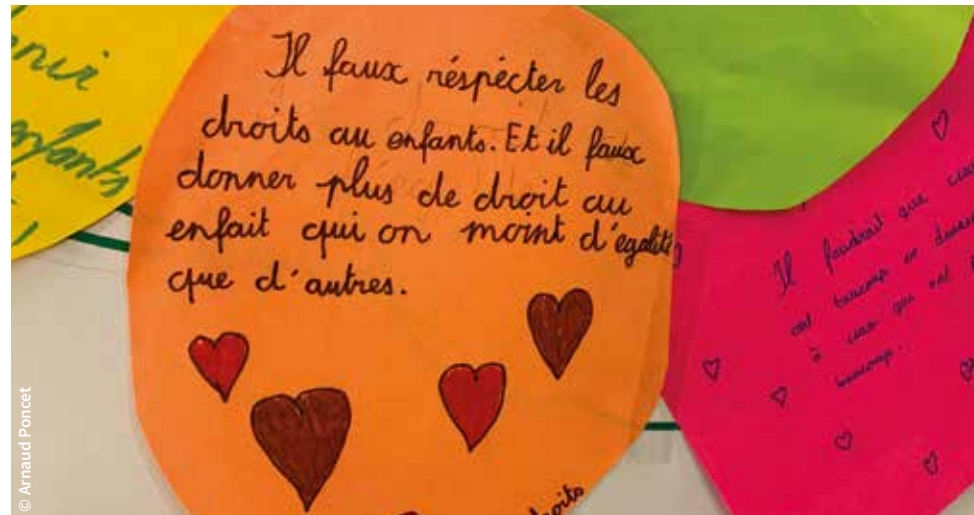 enfants
Il faux réspécter les
droits au enfants. Et il faux
donner plus de droit au
enfait qui on moint d'égalité
que d'autres.
droits
Il faudrait que ceux
ont beaucoup en donne
à ceux qui ont
beaucoup.
© Arnaud Poncet